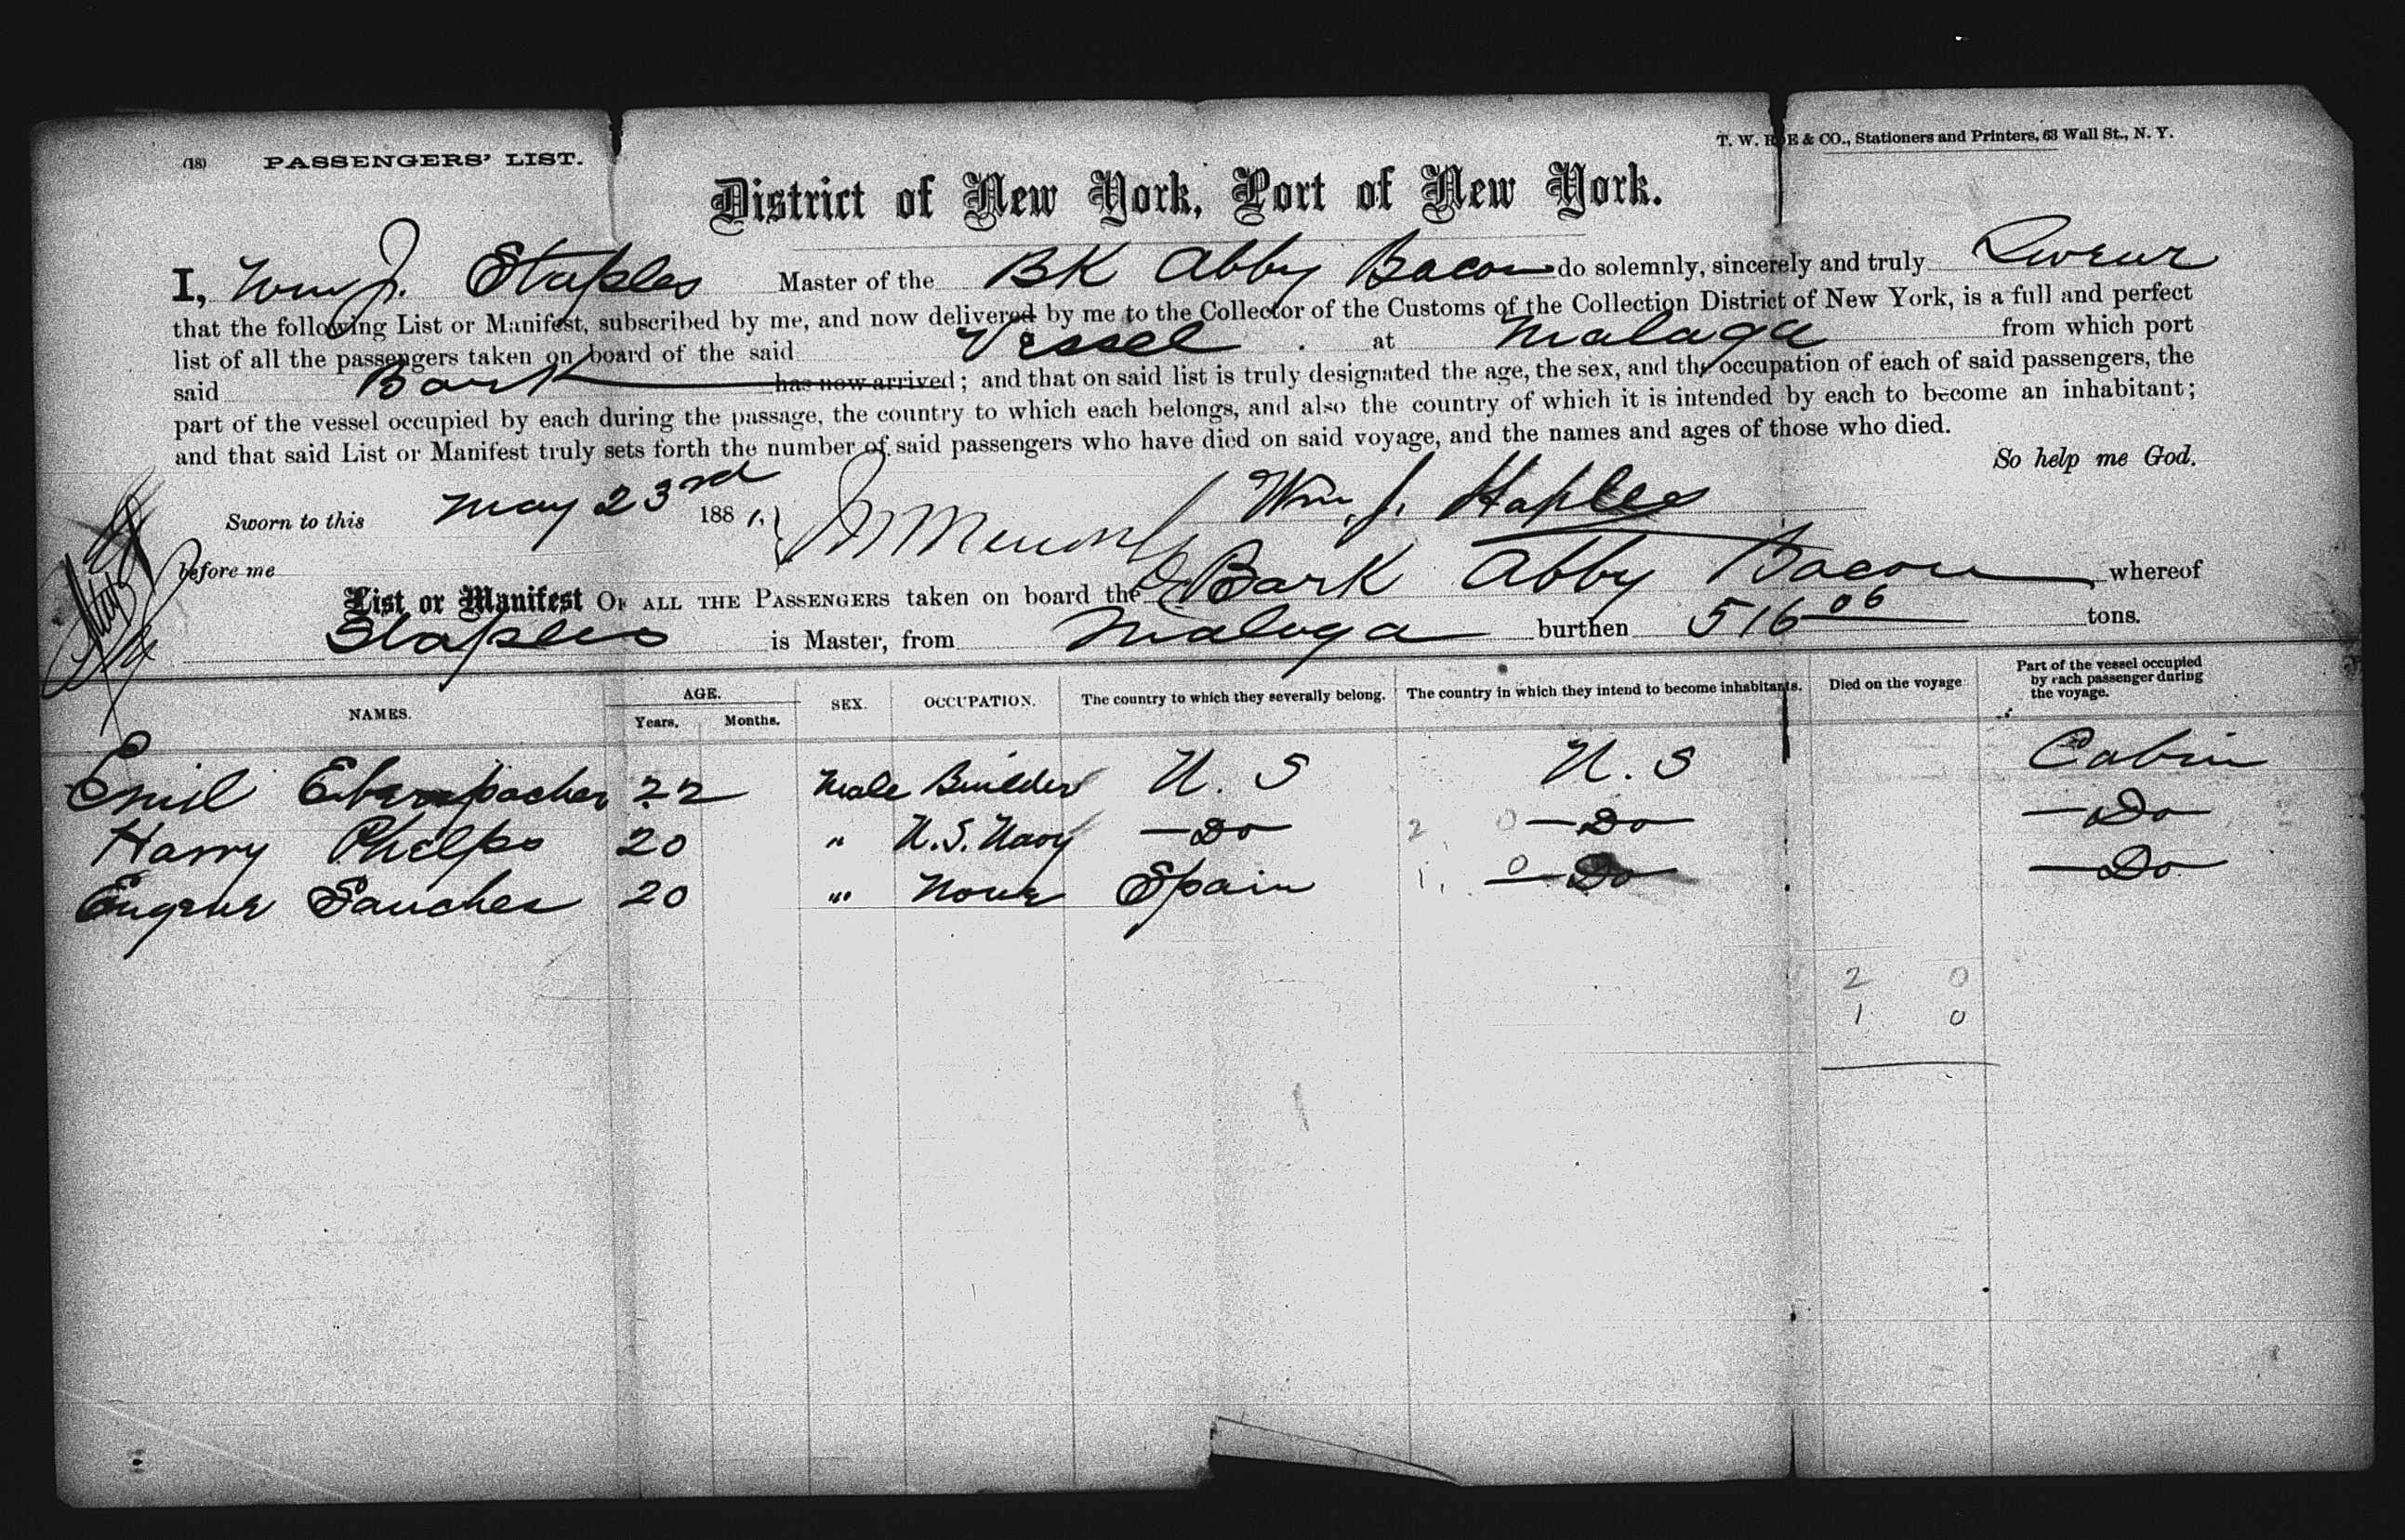 (18) PASSENGERS' LIST.
T. W. ROE & CO., Stationers and Printers, 63 Wall St., N. Y.
District of New York, Port of New York.
I, Wm J. Staples Master of the BK Abby Bacon do solemnly, sincerely and truly Swear
that the following List or Manifest, subscribed by me, and now delivered by me to the Collector of the Customs of the Collection District of New York, is a full and perfect
list of all the passengers taken on board of the said Vessel at Malaga from which port
said Bark has now arrived; and that on said list is truly designated the age, the sex, and the occupation of each of said passengers, the
part of the vessel occupied by each during the passage, the country to which each belongs, and also the country of which it is intended by each to become an inhabitant;
and that said List or Manifest truly sets forth the number of said passengers who have died on said voyage, and the names and ages of those who died.
So help me God.
Sworn to this May 23rd 1881. Wm. J. Staples
before me
List or Manifest OF ALL THE PASSENGERS taken on board the Bark Abby Bacon whereof
Staples is Master, from Malaga burthen 516 06 tons.
NAMES. AGE. Years. Months. SEX. OCCUPATION. The country to which they severally belong. The country in which they intend to become inhabitants. Died on the voyage Part of the vessel occupied by each passenger during the voyage.
Emil 22 Male Builder U. S U. S Cabin
Harry Phelps 20 " U. S. Navy — Do 2 0 — Do — Do
Eugene Sanches 20 " None Spain 1, 0 — Do — Do
2 0
1 0